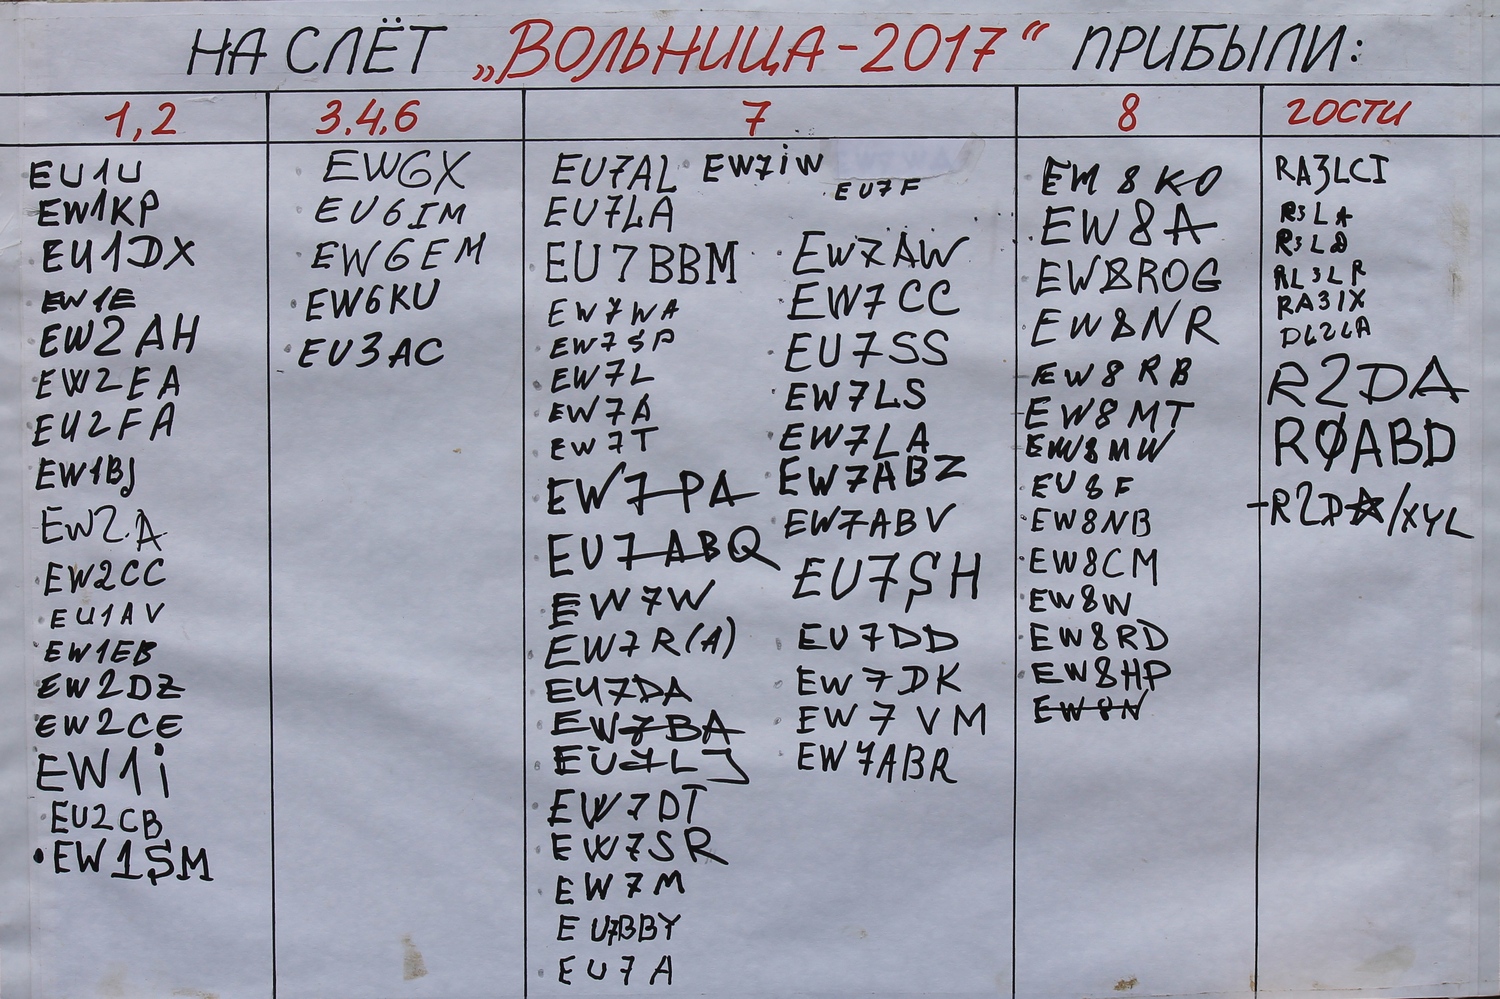 НА СЛЁТ „ВОЛЬНИЦА-2017" ПРИБЫЛИ:
1,2
EU1U
EW1KP
EU1DX
EW1E
EW2AH
EW2EA
EU2FA
EW1BJ
EW2A
EW2CC
EU1AV
EW1EB
EW2DZ
EW2CE
EW1i
EU2CB
EW1SM
3.4.6
EW6X
EU6IM
EW6EM
EW6KU
EU3AC
7
EU7AL
EU7LA
EU7BBM
EW7WA
EW7SP
EW7L
EW7A
EW7T
EW7PA
EU7ABQ
EW7W
EW7R(A)
EU7DA
EW7BA
EU7LJ
EW7DT
EW7SR
EW7M
EU7BBY
EU7A
EW7iW
EU7F
EW7AW
EW7CC
EU7SS
EW7LS
EW7LA
EW7ABZ
EW7ABV
EU7SH
EU7DD
EW7DK
EW7VM
EW7ABR
8
EW8KO
EW8A
EW8ROG
EW8NR
EW8RB
EW8MT
EW8MW
EU8F
EW8NB
EW8CM
EW8W
EW8RD
EW8HP
EW8N
ГОСТИ
RA3LCI
R3LA
RL3LR
RA3IX
DL2LA
R2DA
RØABD